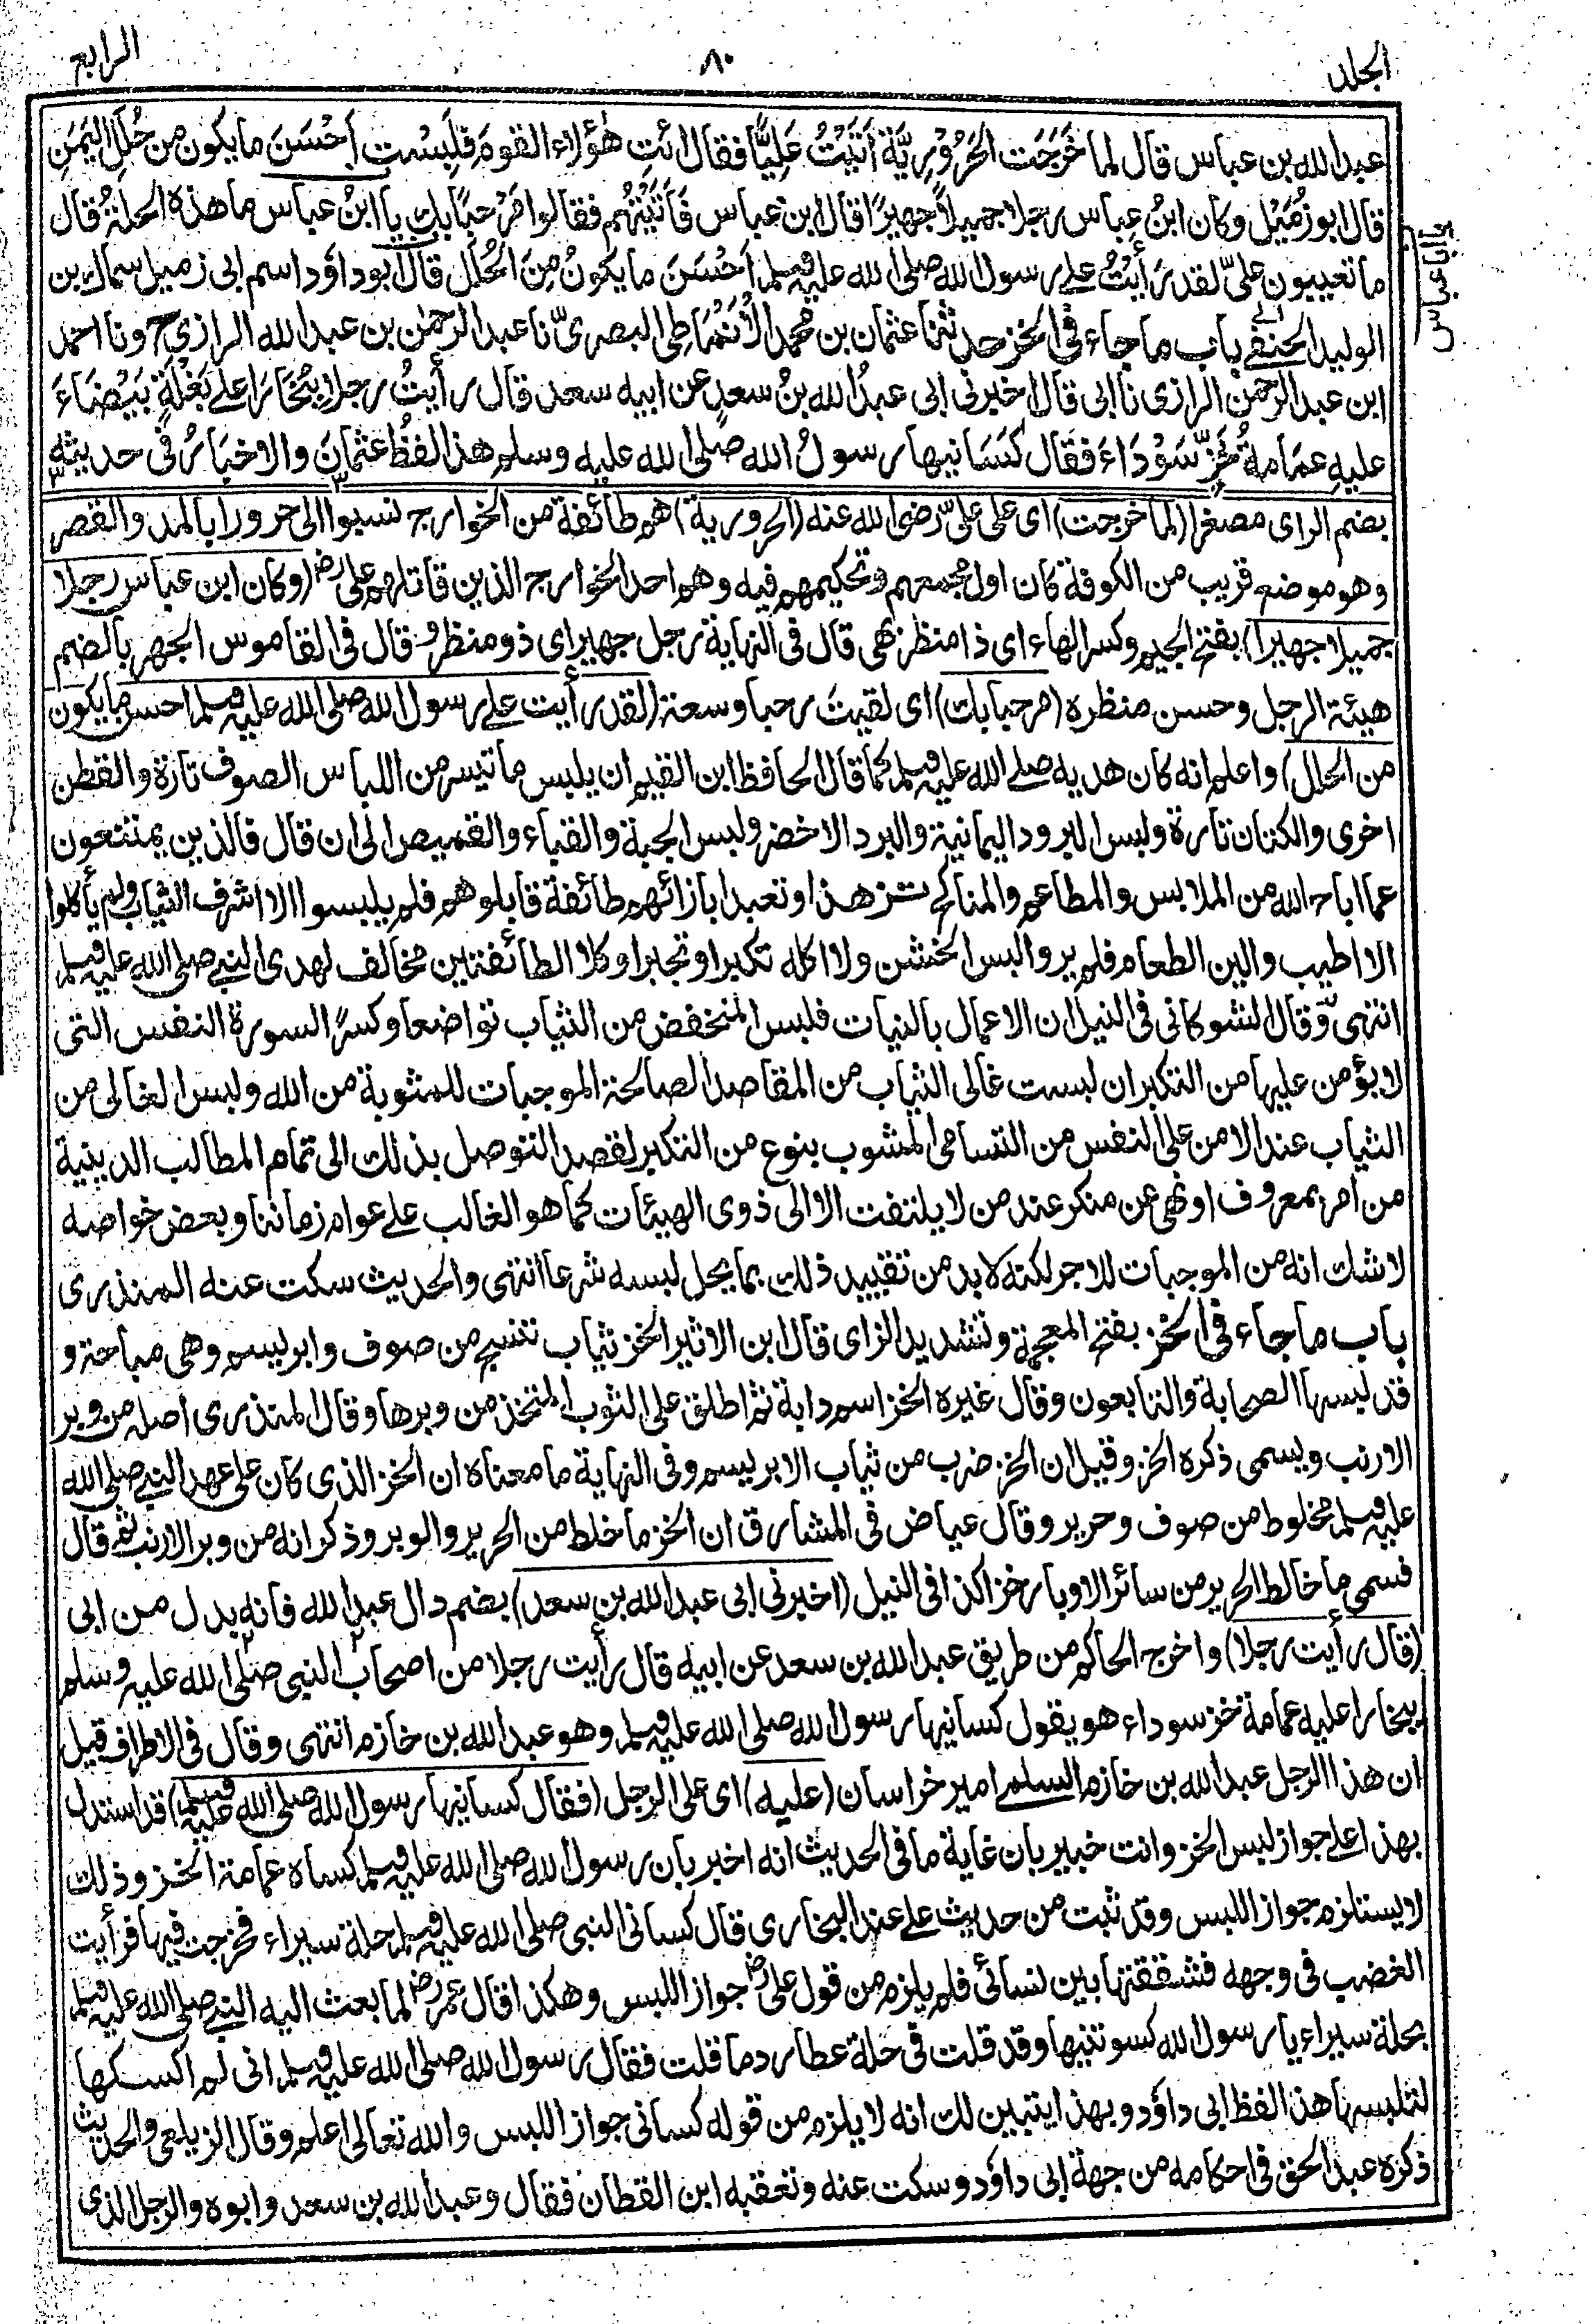 الجلد
٨٠
الرابع
عبد الله بن عباس قال لما خَرَجَت الحَرُوْرِيَّةُ أتَيْتُ عَلِيًّا فقال ائتِ هٰؤلاء القومَ فلَبِسْت اَحْسَنَ مايكون من حُلَلِ اليَمَنِ
قال ابو زُمَيْل وكان ابنُ عباس رجلا جميلاً جهيرًا قال ابن عباس فَأَتَيْتُهُم فقالوا مَرْحبًا بك يا ابنُ عباس ما هذه الحلةُ قال
ما تعيبون عليّ لقد رَأيْتُ على رسول الله صلى الله عليه وسلم اَحْسَنَ ما يكونُ مِنَ الحُلَلِ قال ابو داؤد اسم ابى زميل سماك بن
الوليد الحنفى باب ما جاء فى الخز حدثنا عثمان بن محمد الأَنْمَاطِى البصرىّ نا عبد الرحمٰن بن عبد الله الرازى ح ونا احمد
ابن عبد الرحمٰن الرازى نا ابى قال اخبرنى ابى عبدُ الله بنُ سعدٍ عن ابيه سعد قال رأيتُ رجلا بِبُخَارَا على بَغْلَةٍ بَيْضَاءَ
عليه عمامةُ خَزٍّ سَوْدَاءَ فقال كَسَانيها رسولُ الله صلى الله عليه وسلم هذا لفظُ عثمانَ والاخبَارُ فى حديثه
بضم الزاى مصغرا (لما خرجت) اى على علىّ رضى الله عنه (الحرورية) هم طائفة من الخوارج نسبوا الى حرورا بالمد والقصر
وهو موضع قريب من الكوفة كان اول مجمعهم وتحكيمهم فيه وهم احد الخوارج الذين قاتلهم على رض (وكان ابن عباس رجلا
جميلا جهيرا) بفتح الجيم وكسر الهاء اى ذا منظر بهى قال فى النهاية رجل جهير اى ذو منظر وقال فى القاموس الجهر بالضم
هيئة الرجل وحسن منظره (مرحبا بك) اى لقيت رحبا وسعة (لقد رأيت على رسول الله صلى الله عليه وسلم احسن ما يكون
من الحلل) واعلم انه كان هديه صلى الله عليه وسلم كما قال الحافظ ابن القيم ان يلبس ما تيسر من اللباس الصوف تارة والقطن
اخرى والكتان تارة ولبس البرود اليمانية والبرد الاخضر ولبس الجبة والقباء والقميص الى ان قال فالذين يمتنعون
عما اباح الله من الملابس والمطاعم والمناكح تزهدا وتعبدا بازائهم طائفة قابلوهم فلم يلبسوا الا اشرف الثياب ولم يأكلوا
الا اطيب والين الطعام فلم يروا لبس الخشن ولا اكله تكبرا وتجبرا وكلا الطائفتين مخالف لهدى النبى صلى الله عليه وسلم
انتهى وقال الشوكانى فى النيل ان الاعمال بالنيات فلبس المنخفض من الثياب تواضعا وكسرًا لسورة النفس التى
لا يؤمن عليها من التكبر ان لبست غالى الثياب من المقاصد الصالحة الموجبات للمثوبة من الله ولبس الغالى من
الثياب عند الامن على النفس من التسامى المشوب بنوع من التكبر لقصد التوصل بذلك الى تمام المطالب الدينية
من امر بمعروف او نهى عن منكر عند من لا يلتفت الا الى ذوى الهيئات كما هو الغالب على عوام زماننا وبعض خواصه
لا شك انه من الموجبات للاجر لكنه لا بد من تقييد ذلك بما يحل لبسه شرعا انتهى والحديث سكت عنه المنذرى
باب ما جاء فى الخز بفتح المعجمة وتشديد الزاى قال ابن الاثير الخز ثياب تنسج من صوف وابريسم وهى مباحة و
قد لبسها الصحابة والتابعون وقال غيره الخز اسم دابة ثم اطلق على الثوب المتخذ من وبرها وقال المنذرى اصله من وبر
الارنب ويسمى ذكره الخز وقيل ان الخز ضرب من ثياب الابريسم وفى النهاية ما معناه ان الخز الذى كان على عهد النبى صلى الله
عليه وسلم مخلوط من صوف وحرير وقال عياض فى المشارق ان الخز ما خلط من الحرير والوبر وذكر انه من وبر الارنب ثم قال
فسمى ما خالط الحرير من سائر الاوبار خزا كذا فى النيل (اخبرنى ابى عبد الله بن سعد) بضم دال عبد الله فانه بدل من ابى
(قال رأيت رجلا) واخرج الحاكم من طريق عبد الله بن سعد عن ابيه قال رأيت رجلا من اصحاب النبى صلى الله عليه وسلم
ببخارا عليه عمامة خز سوداء هو يقول كسانيها رسول الله صلى الله عليه وسلم وهو عبد الله بن خازم انتهى وقال فى الاطراف قيل
ان هذا الرجل عبد الله بن خازم السلمى امير خراسان (عليه) اى على الرجل (فقال كسانيها رسول الله صلى الله عليه وسلم) قد استدل
بهذا على جواز لبس الخز وانت خبير بان غاية ما فى الحديث انه اخبر بان رسول الله صلى الله عليه وسلم كساه عمامة الخز وذلك
لا يستلزم جواز اللبس وقد ثبت من حديث على عند البخارى قال كسانى النبى صلى الله عليه وسلم حلة سيراء فخرجت فيها فرأيت
الغضب فى وجهه فشققتها بين نسائى فلم يلزم من قول على رض جواز اللبس وهكذا قال عمر رض لما بعث اليه النبى صلى الله عليه وسلم
بحلة سيراء يا رسول الله كسوتنيها وقد قلت فى حلة عطارد ما قلت فقال رسول الله صلى الله عليه وسلم انى لم اكسكها
لتلبسها هذا لفظ ابى داؤد وبهذا يتبين لك انه لا يلزم من قوله كسانى جواز اللبس والله تعالى اعلم وقال الزيلعى والحديث
ذكره عبد الحق فى احكامه من جهة ابى داؤد وسكت عنه وتعقبه ابن القطان فقال وعبد الله بن سعد وابوه والرجل الذى